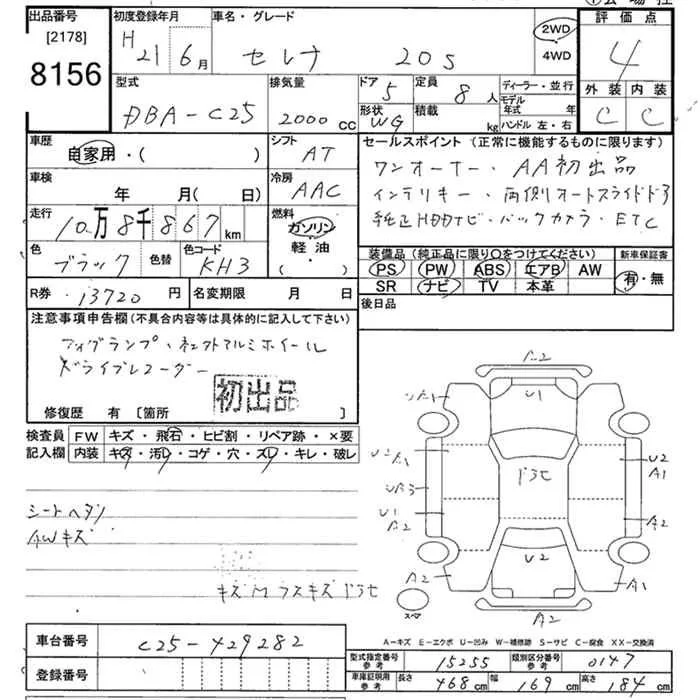 出品番号
[2178]
8156
初度登録年月
H 21年 6月
車名・グレード
セレナ 20S
2WD
4WD
評価点
4
外装 内装
C C
型式
DBA-C25
排気量
2000 CC
ドア
5
定員
8人
形状
WG
積載
kg
ディーラー・並行
モデル年式 年
ハンドル 左・右
車歴
自家用・( )
シフト
AT
セールスポイント (正常に機能するものに限ります)
ワンオーナー、AA初出品
インテリキー、両側オートスライドドア
純正HDDナビ・バックカメラ・ETC
車検
年 月( 日)
冷房
AAC
走行
10万8千867 km
燃料
ガソリン
軽油
・( )
色
ブラック
色替
色コード
KH3
装備品 (純正品に限り○をつけてください)
PS PW ABS エアB AW
SR ナビ TV 本革
新車保証書
有・無
R券 13720円
名変期限 月 日
後日品
注意事項申告欄(不具合内容等は具体的に記入して下さい)
フォグランプ・社外アルミホイール
ドライブレコーダー
初出品
修復歴 有 [箇所 ]
検査員記入欄
FW キズ・飛石・ヒビ割・リペア跡・×要
内装 キズ・汚レ・コゲ・穴・スレ・キレ・破レ
シートヘタリ
AWキズ
キズM ラスキズ ドラモ
A2
U1
U2
A1
ドラモ
U2
A1
U1
A2
A2
U2
A2
A1
スペア
A2
A-キズ E-エクボ U-凹み W-補修跡 S-サビ C-腐食 XX-交換済
車台番号
C25-429282
登録番号
型式指定番号 参考
15255
類別区分番号 参考
0147
車庫証明用 参考
長さ 468cm 幅 169cm 高さ 184cm